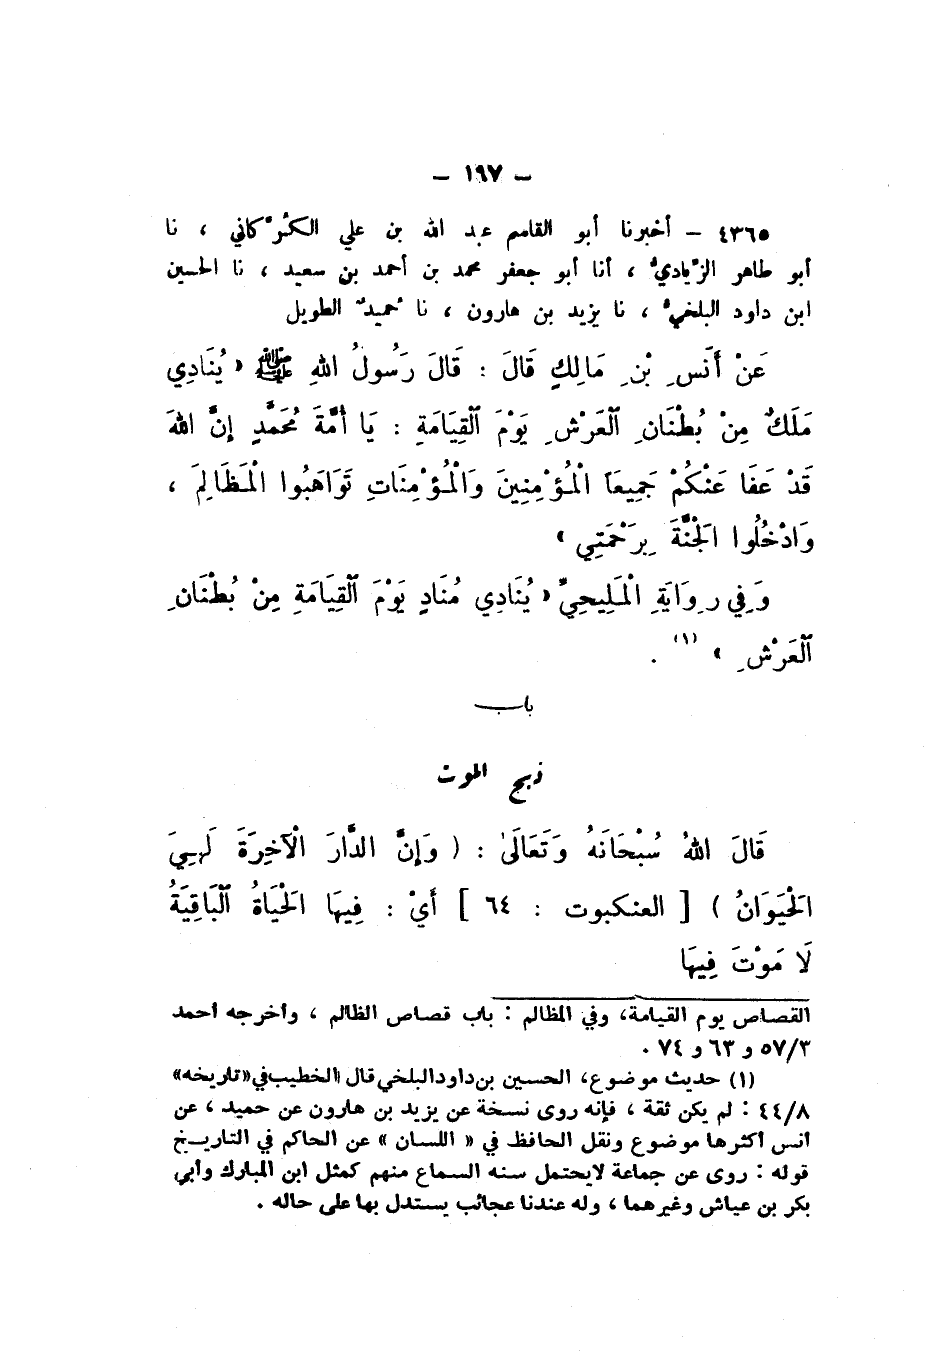 – ١٩٧ –
٤٣٦٥ – أخبرنا أبو القاسم عبد الله بن علي الكُرَّكاني ، نا
أبو طاهر الزِّياديُّ ، أنا أبو جعفر محمد بن أحمد بن سعيد ، نا الحسين
ابن داود البلخيُّ ، نا يزيد بن هارون ، نا حُميدٌ الطويل
عَنْ أَنَسِ بْنِ مَالِكٍ قَالَ : قَالَ رَسُولُ اللهِ ﷺ « يُنَادِي
مَلَكٌ مِنْ بُطْنَانِ ٱلْعَرْشِ يَوْمَ ٱلْقِيَامَةِ : يَا أُمَّةَ مُحَمَّدٍ إِنَّ اللهَ
قَدْ عَفَا عَنْكُمْ جَمِيعَاً الْمُؤْمِنِينَ وَالْمُؤْمِنَاتِ تَوَاهَبُوا الْمَظَالِمَ ،
وَادْخُلُوا الْجَنَّةَ بِرَحْمَتِي »
وَفِي رِوَايَةِ الْمَلِيحِيِّ « يُنَادِي مُنَادٍ يَوْمَ ٱلْقِيَامَةِ مِنْ بُطْنَانِ
ٱلْعَرْشِ » (١) .
باب
ذبح الموت
قَالَ اللهُ سُبْحَانَهُ وَتَعَالَىٰ : ( وَإِنَّ الدَّارَ الْآخِرَةَ لَهِيَ
الْحَيَوَانُ ) [ العنكبوت : ٦٤ ] أَيْ : فِيهَا الْحَيَاةُ ٱلْبَاقِيَةُ
لَا مَوْتَ فِيهَا
القصاص يوم القيامة، وفي المظالم : باب قصاص الظالم ، وأخرجه أحمد
٥٧/٣ و ٦٣ و ٧٤ .
(١) حديث موضوع، الحسين بن داود البلخي قال الخطيب في «تاريخه»
٤٤/٨ : لم يكن ثقة ، فإنه روى نسخة عن يزيد بن هارون عن حميد ، عن
أنس أكثرها موضوع ونقل الحافظ في « اللسان » عن الحاكم في التاريخ
قوله : روى عن جماعة لايحتمل سنه السماع منهم كمثل ابن المبارك وأبي
بكر بن عياش وغيرهما ، وله عندنا عجائب يستدل بها على حاله .